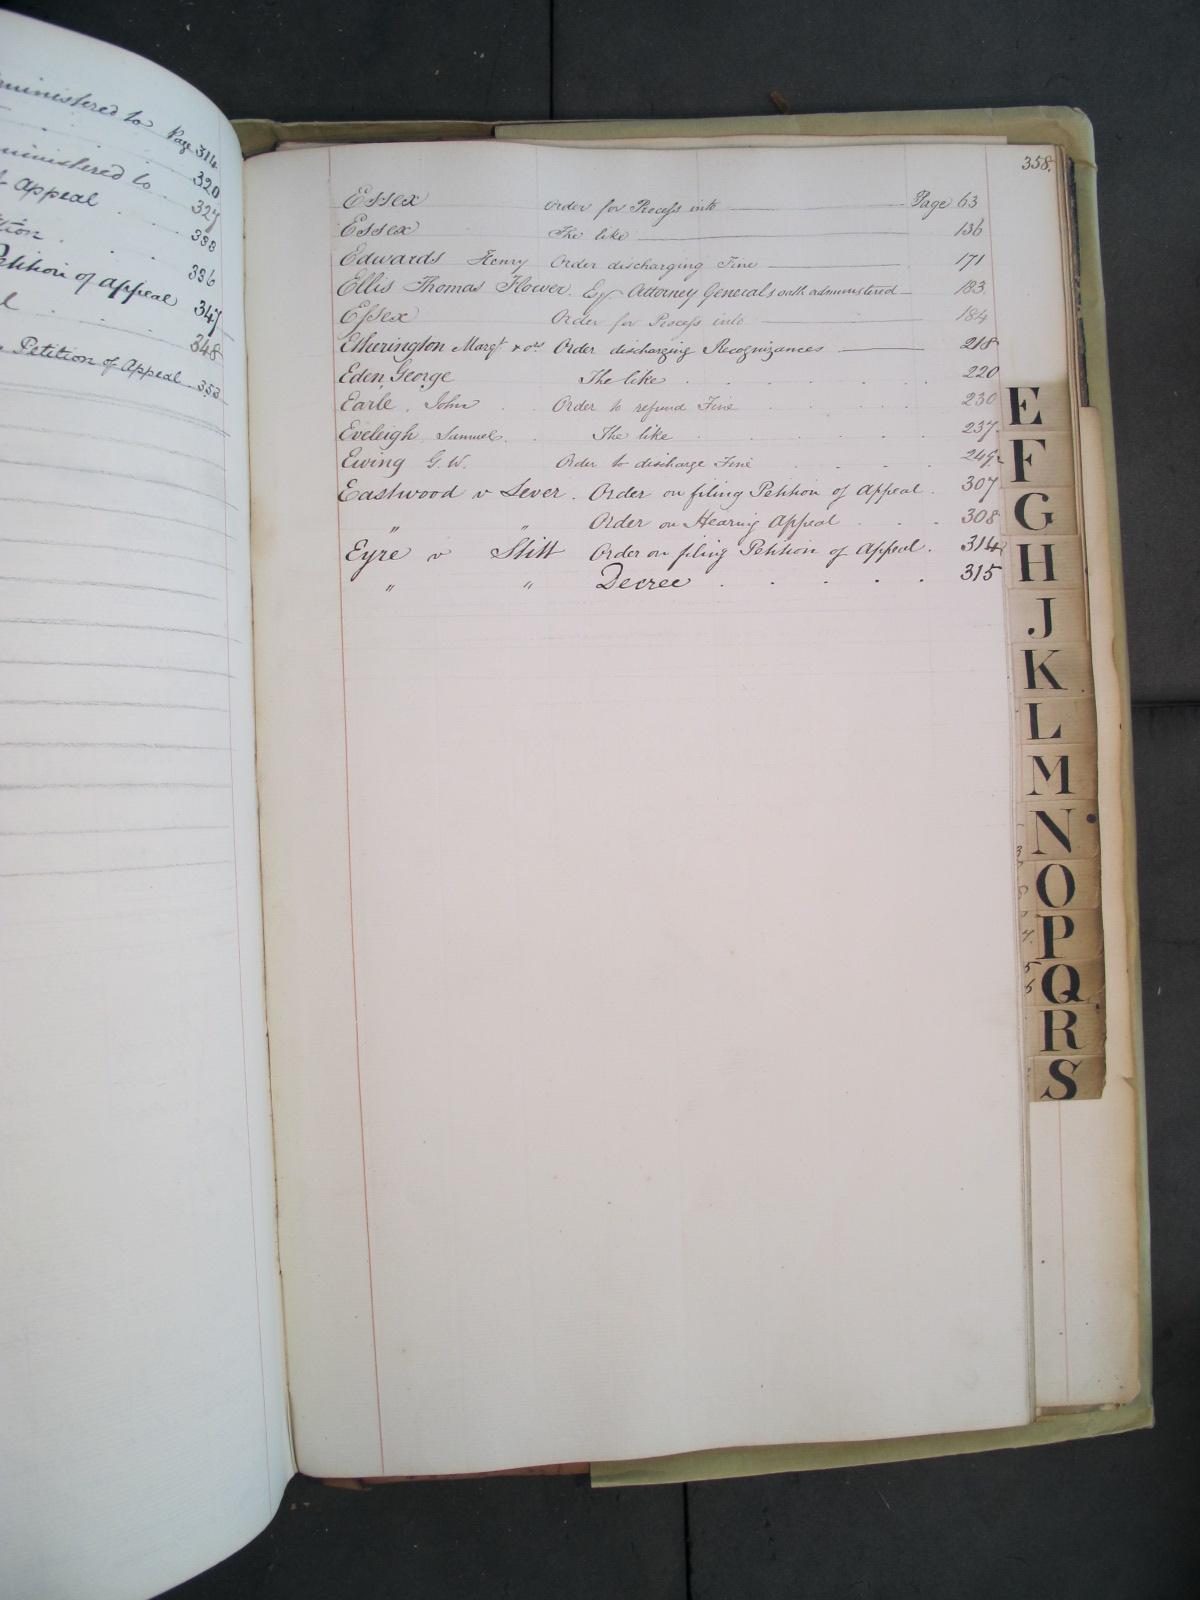 ministered to Page 314
320
ministered to 327
Appeal 330
336
Petition of appeal 347
348
Petition of Appeal 353
358.
Essex Order for Process into Page 63
Essex The like 136
Edwards Henry Order discharging Fine 171
Ellis Thomas Flower Esq Attorney Generals oath administered 183.
Essex Order for Process into 184
Etherington Margt & ors Order discharging Recognizances 218
Eden, George The like 220
Earle, John Order to refund Fine 230
Eveleigh Samuel. The like 237
Ewing G. W. Order to discharge Fine 249
Eastwood v Lever. Order on filing Petition of Appeal. 307
" " Order on Hearing Appeal 308
Eyre v Stitt Order on filing Petition of Appeal. 314
" " Decree 315
E
F
G
H
J
K
L
M
N
O
P
Q
R
S